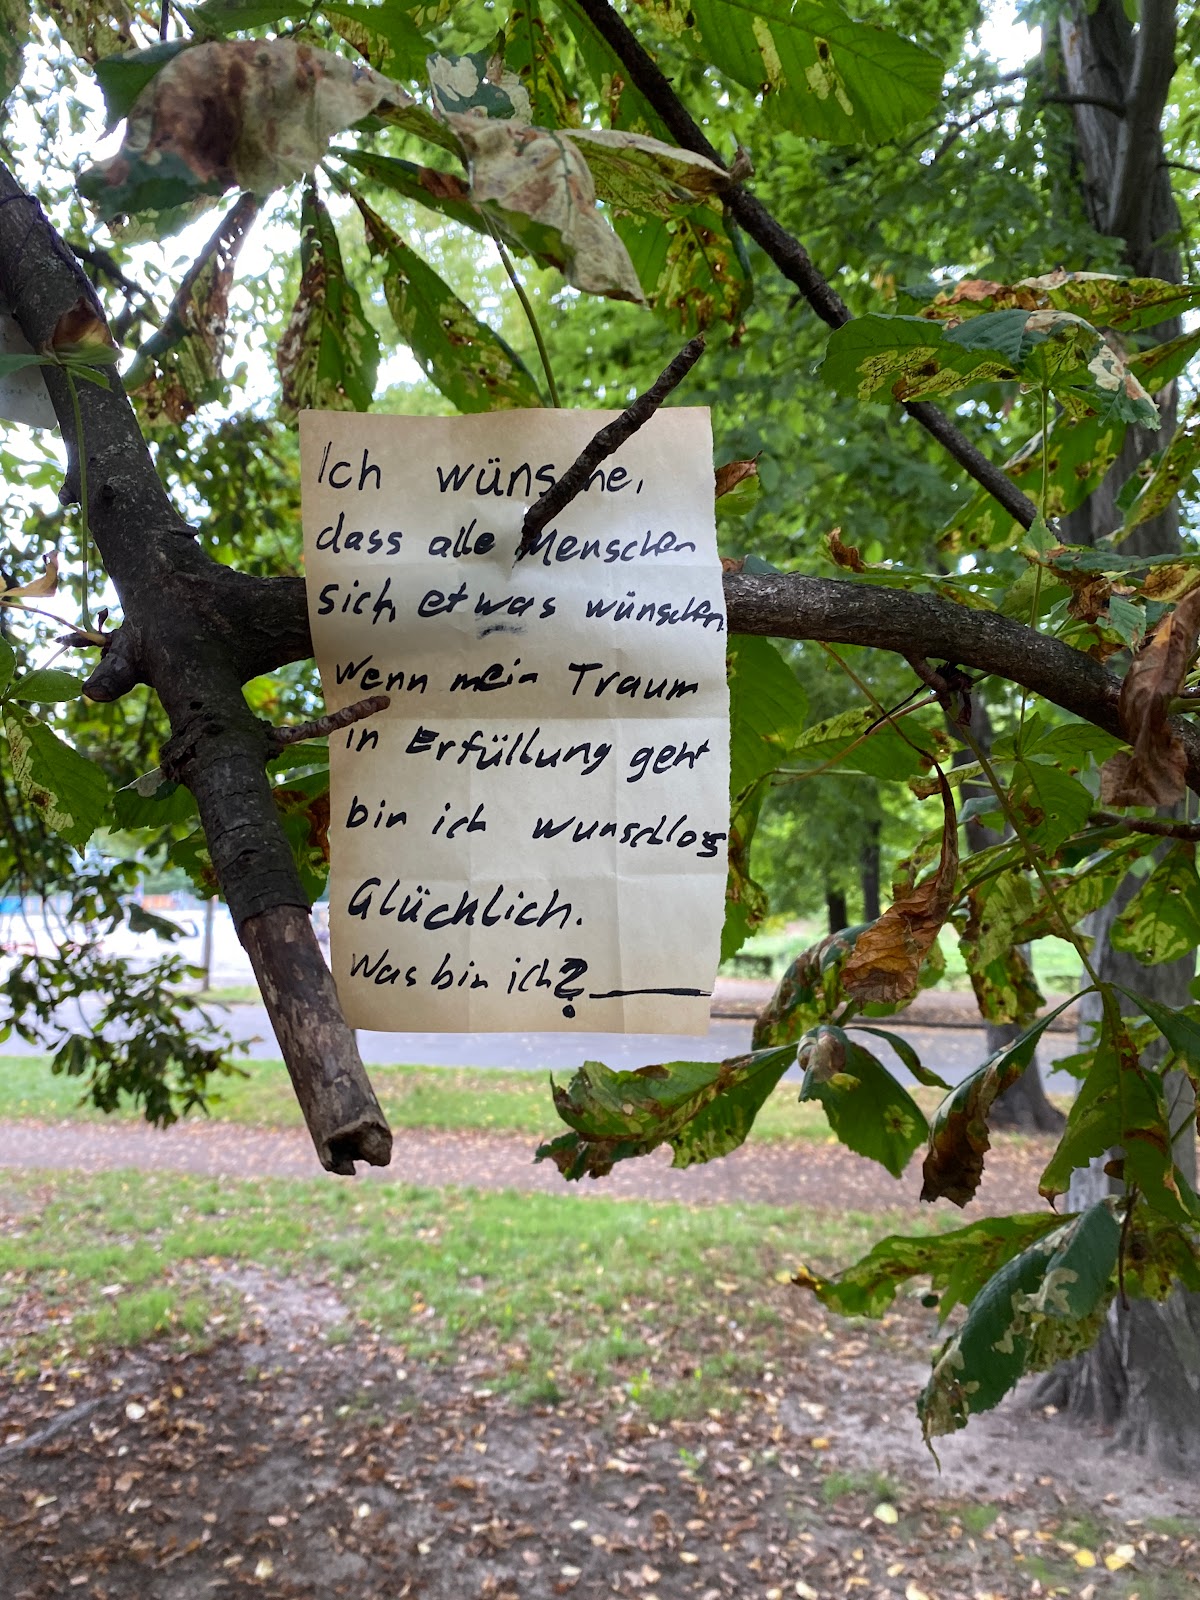 Ich wünsche,
dass alle Menschen
sich etwas wünschen.
Wenn mein Traum
in Erfüllung geht
bin ich wunschlos
Glücklich.
Was bin ich?